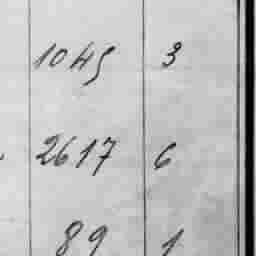 1045 3
2617 6
89 1